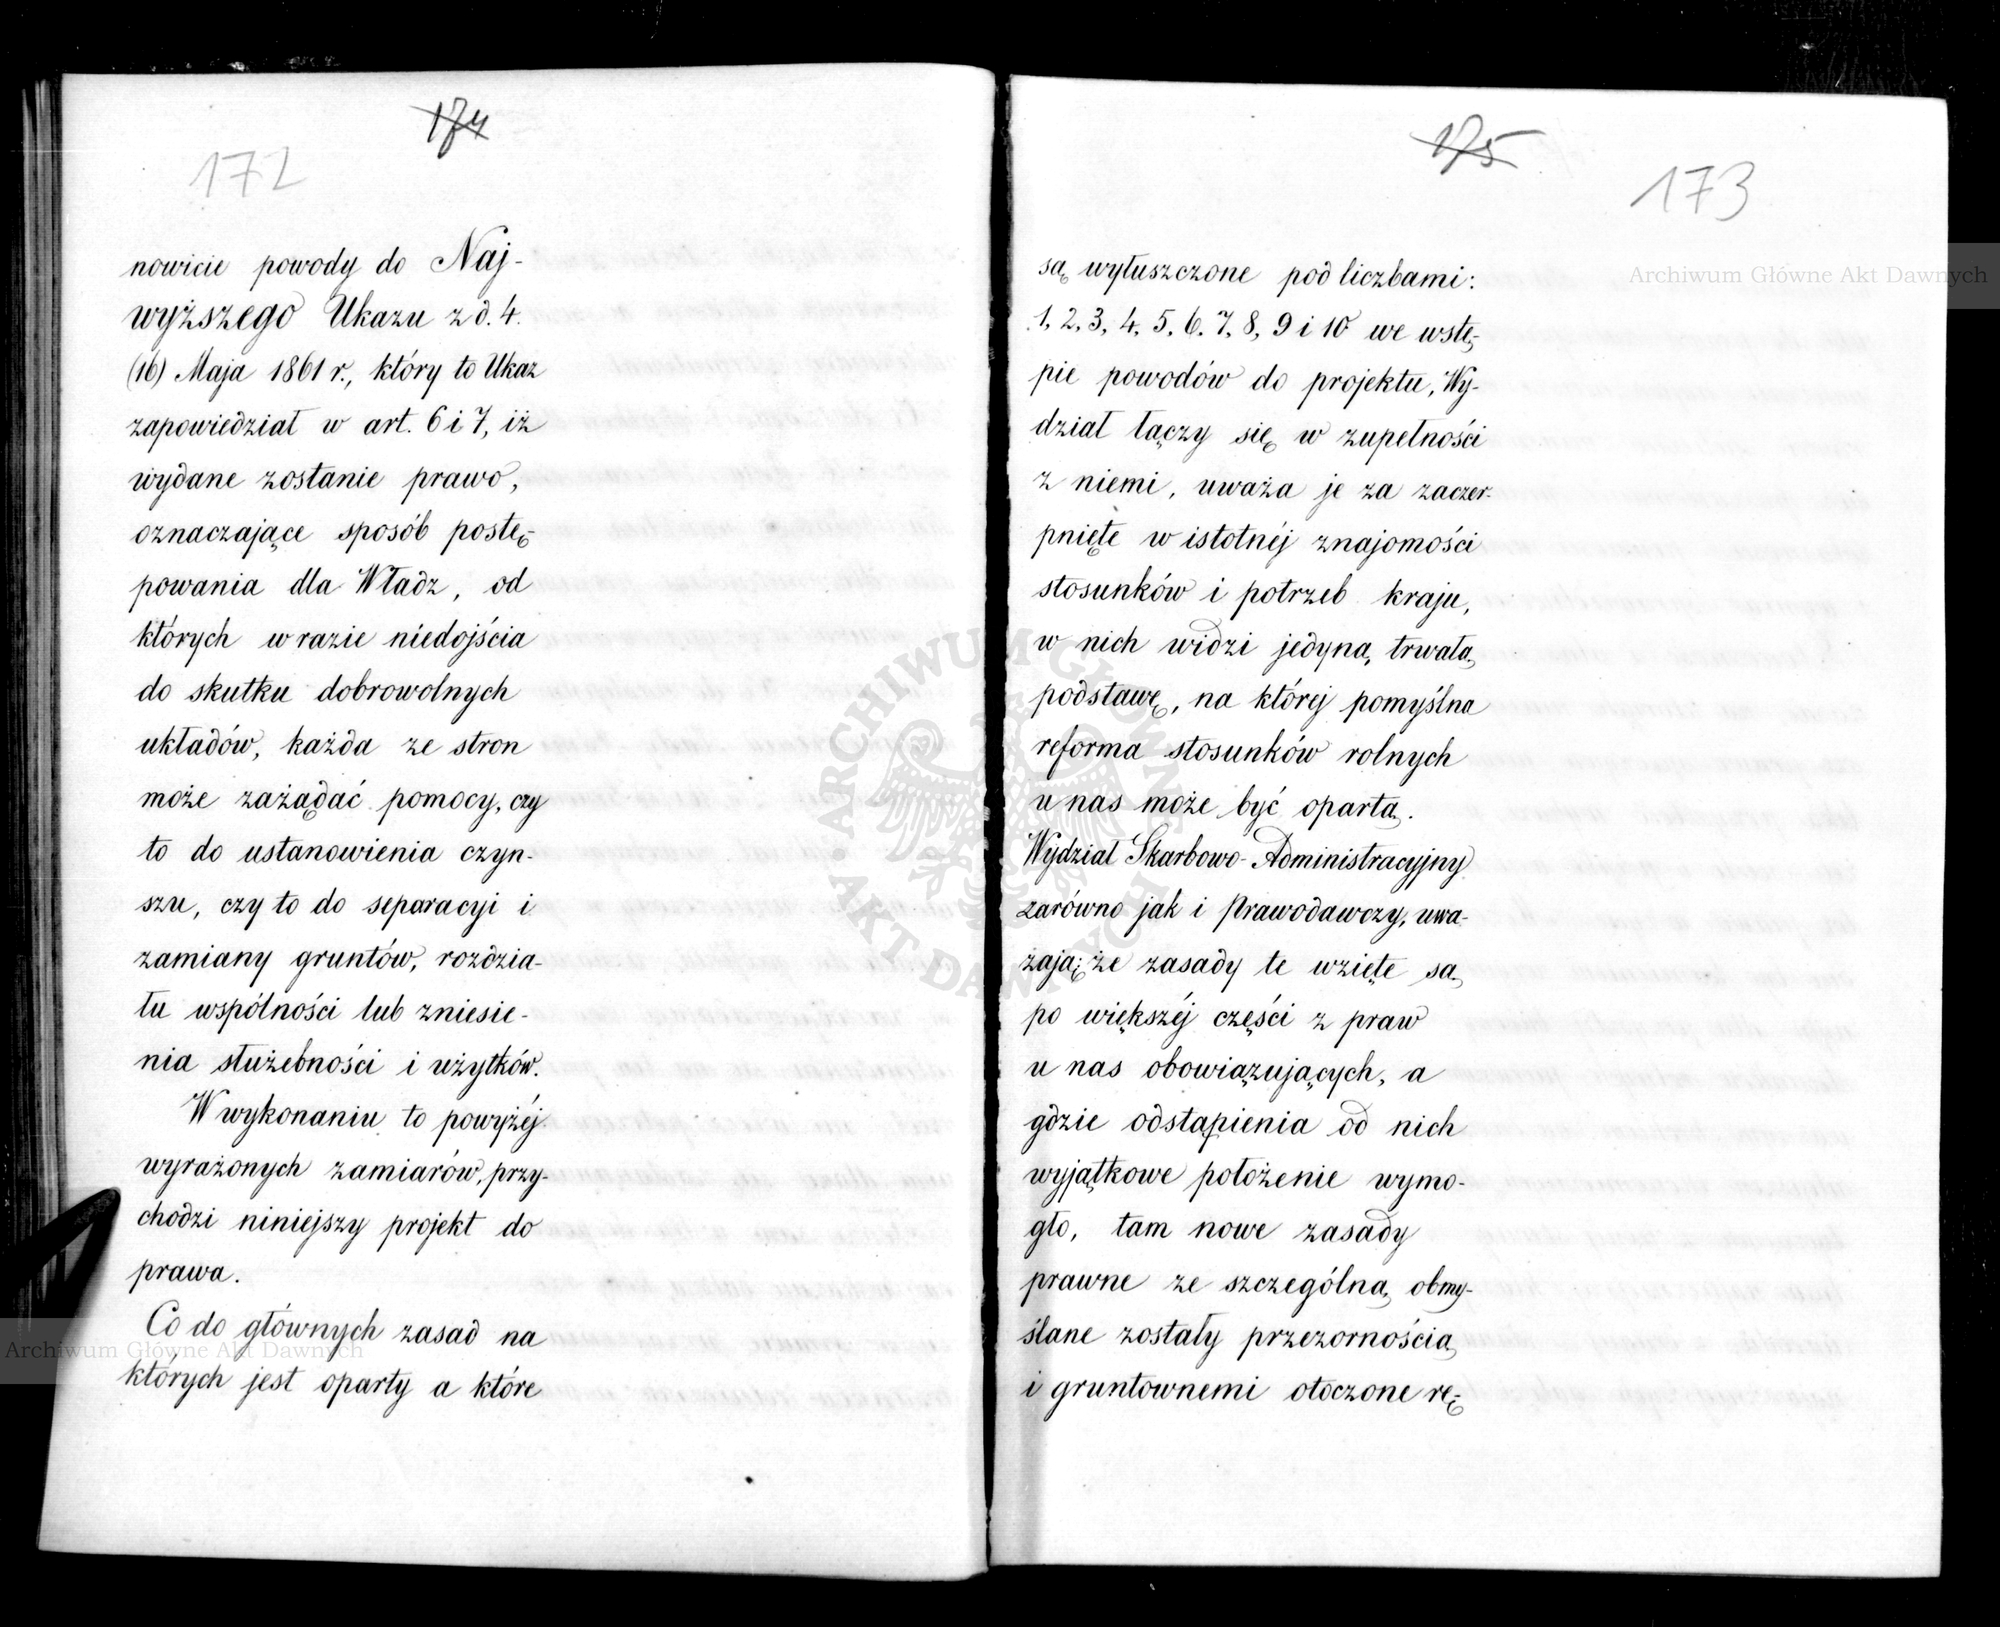 174
172
nowicie powody do Naj-
wyższego Ukazu z d. 4.
(16) Maja 1861 r., który to Ukaz
zapowiedział w art. 6 i 7, iż
wydane zostanie prawo,
oznaczające sposób postę-
powania dla Władz, od
których w razie niedojścia
do skutku dobrowolnych
układów, każda ze stron
może zażądać pomocy, czy
to do ustanowienia czyn-
szu, czy to do separacyi i
zamiany gruntów, rozdzia-
łu wspólności lub zniesie-
nia służebności i użytków.
W wykonaniu to powyżéj
wyrażonych zamiarów, przy-
chodzi niniejszy projekt do
prawa.
Co do głównych zasad na
których jest oparty a które
175
173
są wyłuszczone pod liczbami:
1, 2, 3, 4, 5, 6, 7, 8, 9 i 10 we wstę-
pie powodów do projektu, Wy-
dział łączy się w zupełności
z niemi, uważa je za zaczer-
pnięte w istotnéj znajomości
stosunków i potrzeb kraju,
w nich widzi jedyną, trwałą
podstawę, na któréj pomyślna
reforma stosunków rolnych
u nas może być opartą.
Wydział Skarbowo-Administracyjny
zarówno jak i Prawodawczy, uwa-
żają; że zasady te wzięte są
po większéj części z praw
u nas obowiązujących, a
gdzie odstąpienia od nich
wyjątkowe położenie wymo-
gło, tam nowe zasady
prawne ze szczególną obmy-
ślane zostały przezornością
i gruntownemi otoczone rę-
Archiwum Główne Akt Dawnych
Archiwum Główne Akt Dawnych
ARCHIWUM GŁÓWNE AKT DAWNYCH